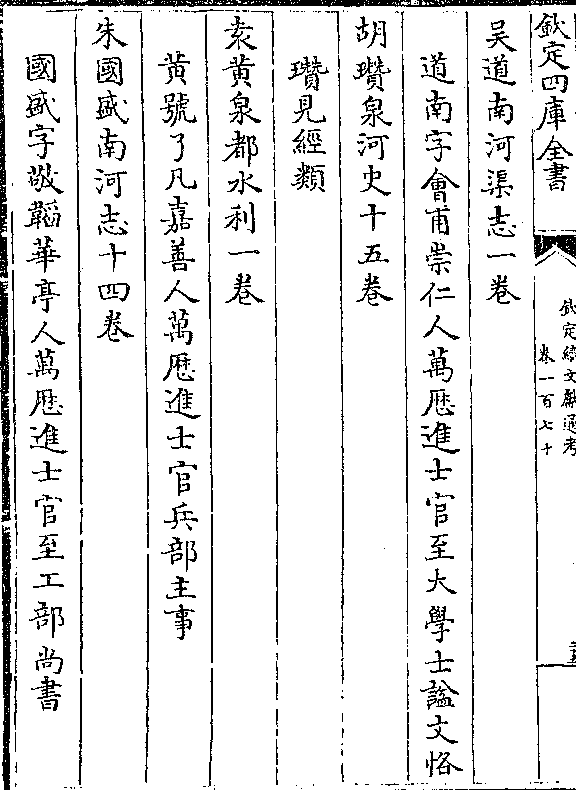 欽定四庫全書
欽定續文獻通考
卷一百七十
吳道南河渠志一卷
道南字會甫崇仁人萬厯進士官至大學士諡文恪
胡瓚泉河史十五卷
瓚見經類
袁黃泉都水利一卷
黃號了凡嘉善人萬厯進士官兵部主事
朱國盛南河志十四卷
國盛字敬韜華亭人萬厯進士官至工部尚書